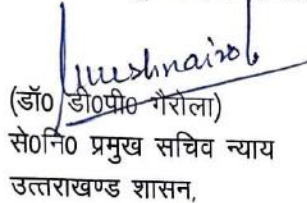 (डॉ0 डी0पी0 गैरोला)
से0नि0 प्रमुख सचिव न्याय
उत्तराखण्ड शासन,